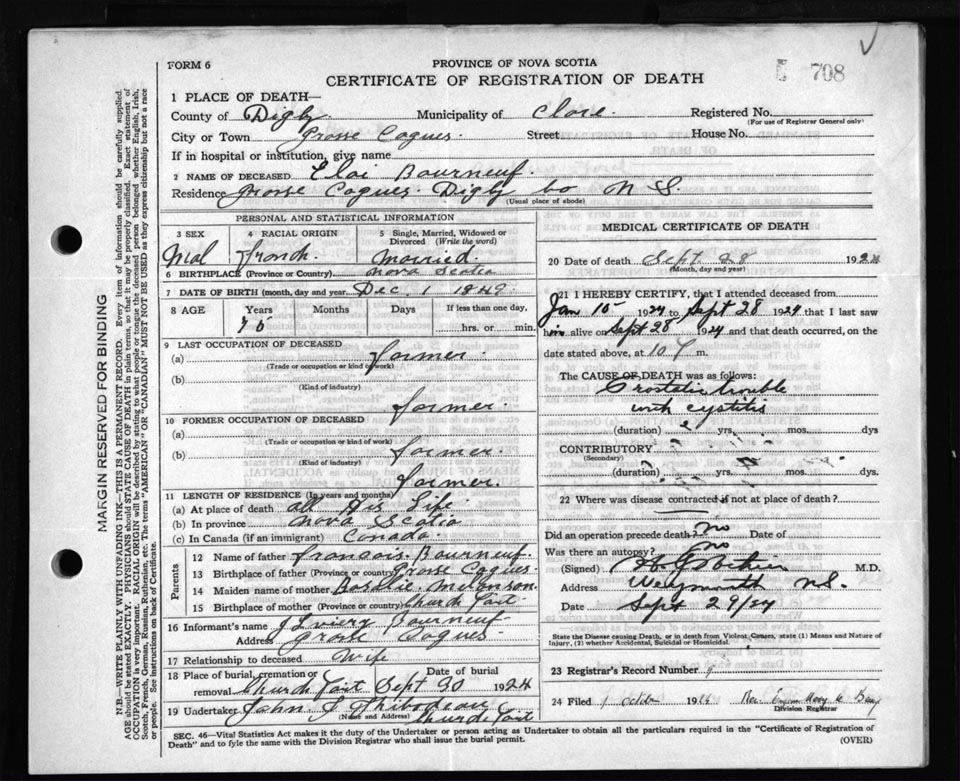 FORM 6
PROVINCE OF NOVA SCOTIA
CERTIFICATE OF REGISTRATION OF DEATH
708
1 PLACE OF DEATH—
County of Digby Municipality of Clare. Registered No.
(For use of Registrar General only)
City or Town Grosse Coques. Street House No.
If in hospital or institution, give name
2 NAME OF DECEASED Eloi Bourneuf.
Residence Grosse Coques. Digby Co N S.
(Usual place of abode)
PERSONAL AND STATISTICAL INFORMATION
3 SEX 4 RACIAL ORIGIN 5 Single, Married, Widowed or Divorced (Write the word)
Mal French. Married.
6 BIRTHPLACE (Province or Country) Nova Scotia
7 DATE OF BIRTH (month, day and year) Dec. 1 1849
8 AGE Years Months Days If less than one day,
75 hrs. or min.
9 LAST OCCUPATION OF DECEASED
(a) farmer.
(Trade or occupation or kind of work)
(b)
(Kind of industry)
farmer.
10 FORMER OCCUPATION OF DECEASED
(a)
(Trade or occupation or kind of work)
(b) farmer.
(Kind of industry)
farmer.
11 LENGTH OF RESIDENCE (In years and months)
(a) At place of death all His Life
(b) In province Nova Scotia
(c) In Canada (if an immigrant) Canada.
Parents
12 Name of father Francois. Bourneuf.
13 Birthplace of father (Province or country) Grosse Coques.
14 Maiden name of mother Melanson.
15 Birthplace of mother (Province or country) Church Point.
16 Informant's name Bourneuf-
Address Grosse Coques-
17 Relationship to deceased Wife
18 Place of burial, cremation or removal Church Point Date of burial Sept 30 1924
19 Undertaker John S Thibodeau
(Name and Address) Church Point
MEDICAL CERTIFICATE OF DEATH
20 Date of death Sept 28 1924
(Month, day and year)
21 I HEREBY CERTIFY, that I attended deceased from
Jan 15 1924 to Sept 28 1924 that I last saw
him alive on Sept 28 1924 and that death occurred, on the
date stated above, at 10 m.
The CAUSE OF DEATH was as follows:
Prostatic trouble
with cystitis
(duration) yrs. mos. dys
CONTRIBUTORY
(Secondary)
(duration) yrs. mos. dys.
22 Where was disease contracted if not at place of death?
Did an operation precede death? no Date of
Was there an autopsy? no
(Signed) M.D.
Address Weymouth N.S.
Date Sept 29/24
State the Disease causing Death, or in death from Violent Causes, state (1) Means and Nature of Injury, (2) whether Accidental, Suicidal or Homicidal.
23 Registrar's Record Number 9
24 Filed 1 October 1924
Division Registrar
SEC. 46—Vital Statistics Act makes it the duty of the Undertaker or person acting as Undertaker to obtain all the particulars required in the "Certificate of Registration of
Death" and to fyle the same with the Division Registrar who shall issue the burial permit. (OVER)
MARGIN RESERVED FOR BINDING
N.B.—WRITE PLAINLY WITH UNFADING INK—THIS IS A PERMANENT RECORD. Every item of information should be carefully supplied.
AGE should be stated EXACTLY. PHYSICIANS should STATE CAUSE OF DEATH in plain terms, so that it may be properly classified. Exact statement of
OCCUPATION is very important. RACIAL ORIGIN will be described by stating to what people or tongue the deceased person belonged whether English, Irish,
Scotch, French, German, Russian, Ruthenian, etc. The terms "AMERICAN" or "CANADIAN" MUST NOT BE USED as they express citizenship but not a race
or people. See instructions on back of Certificate.